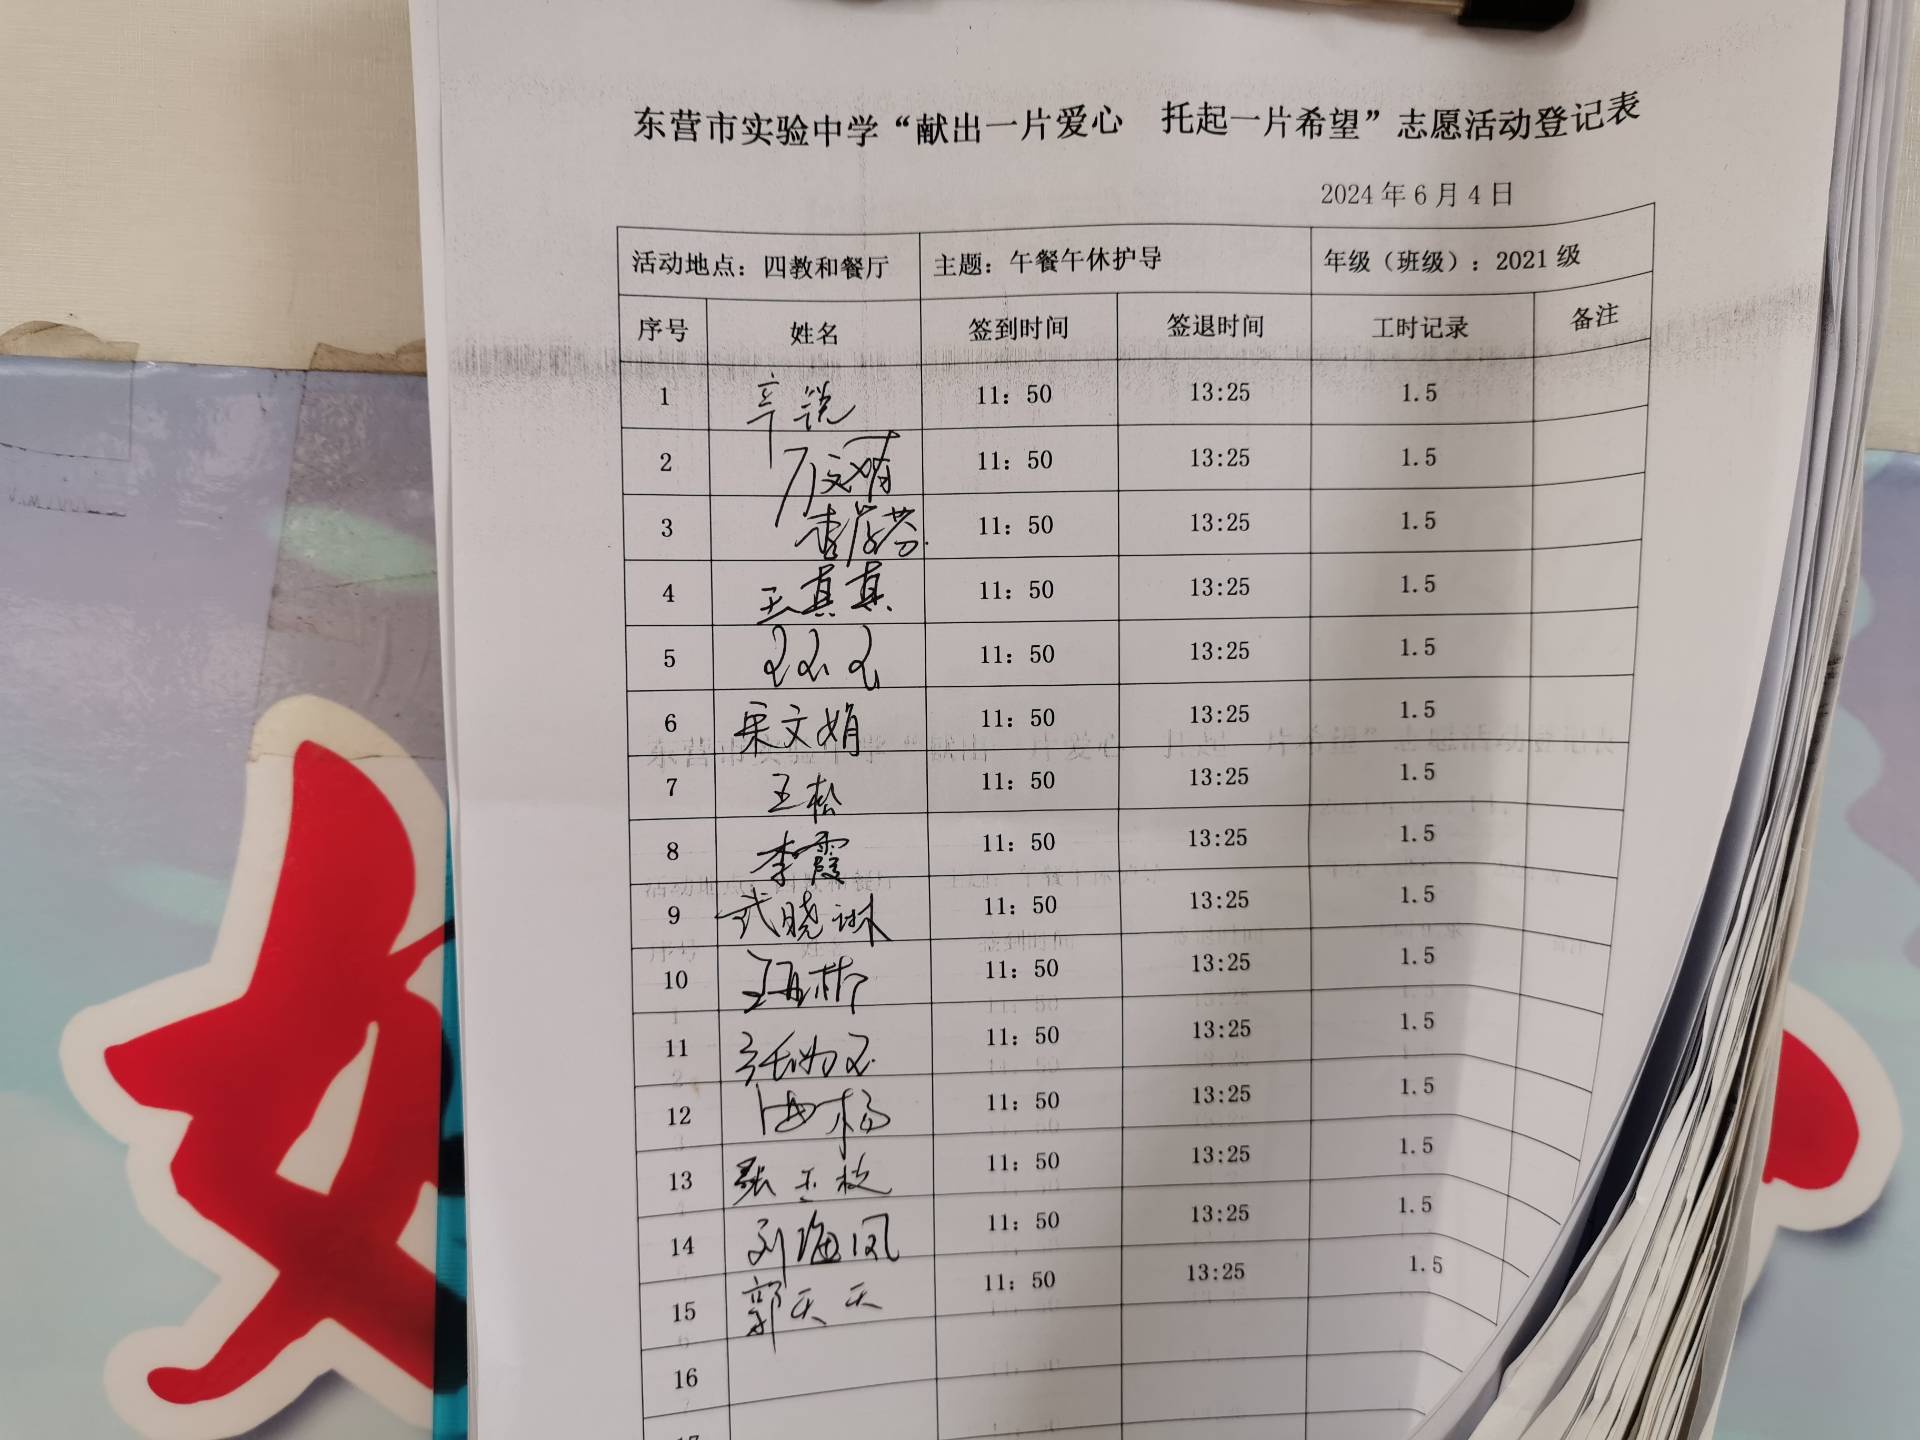 东营市实验中学“献出一片爱心 托起一片希望”志愿活动登记表
2024年6月4日
活动地点：四教和餐厅 主题：午餐午休护导 年级（班级）：2021级
序号 姓名 签到时间 签退时间 工时记录 备注
1 辛锐 11：50 13:25 1.5
2 11：50 13:25 1.5
3 11：50 13:25 1.5
4 王真真 11：50 13:25 1.5
5 11：50 13:25 1.5
6 宋文娟 11：50 13:25 1.5
7 王松 11：50 13:25 1.5
8 李霞 11：50 13:25 1.5
9 武晓琳 11：50 13:25 1.5
10 11：50 13:25 1.5
11 11：50 13:25 1.5
12 11：50 13:25 1.5
13 张玉枝 11：50 13:25 1.5
14 刘海凤 11：50 13:25 1.5
15 郭天天 11：50 13:25 1.5
16
17